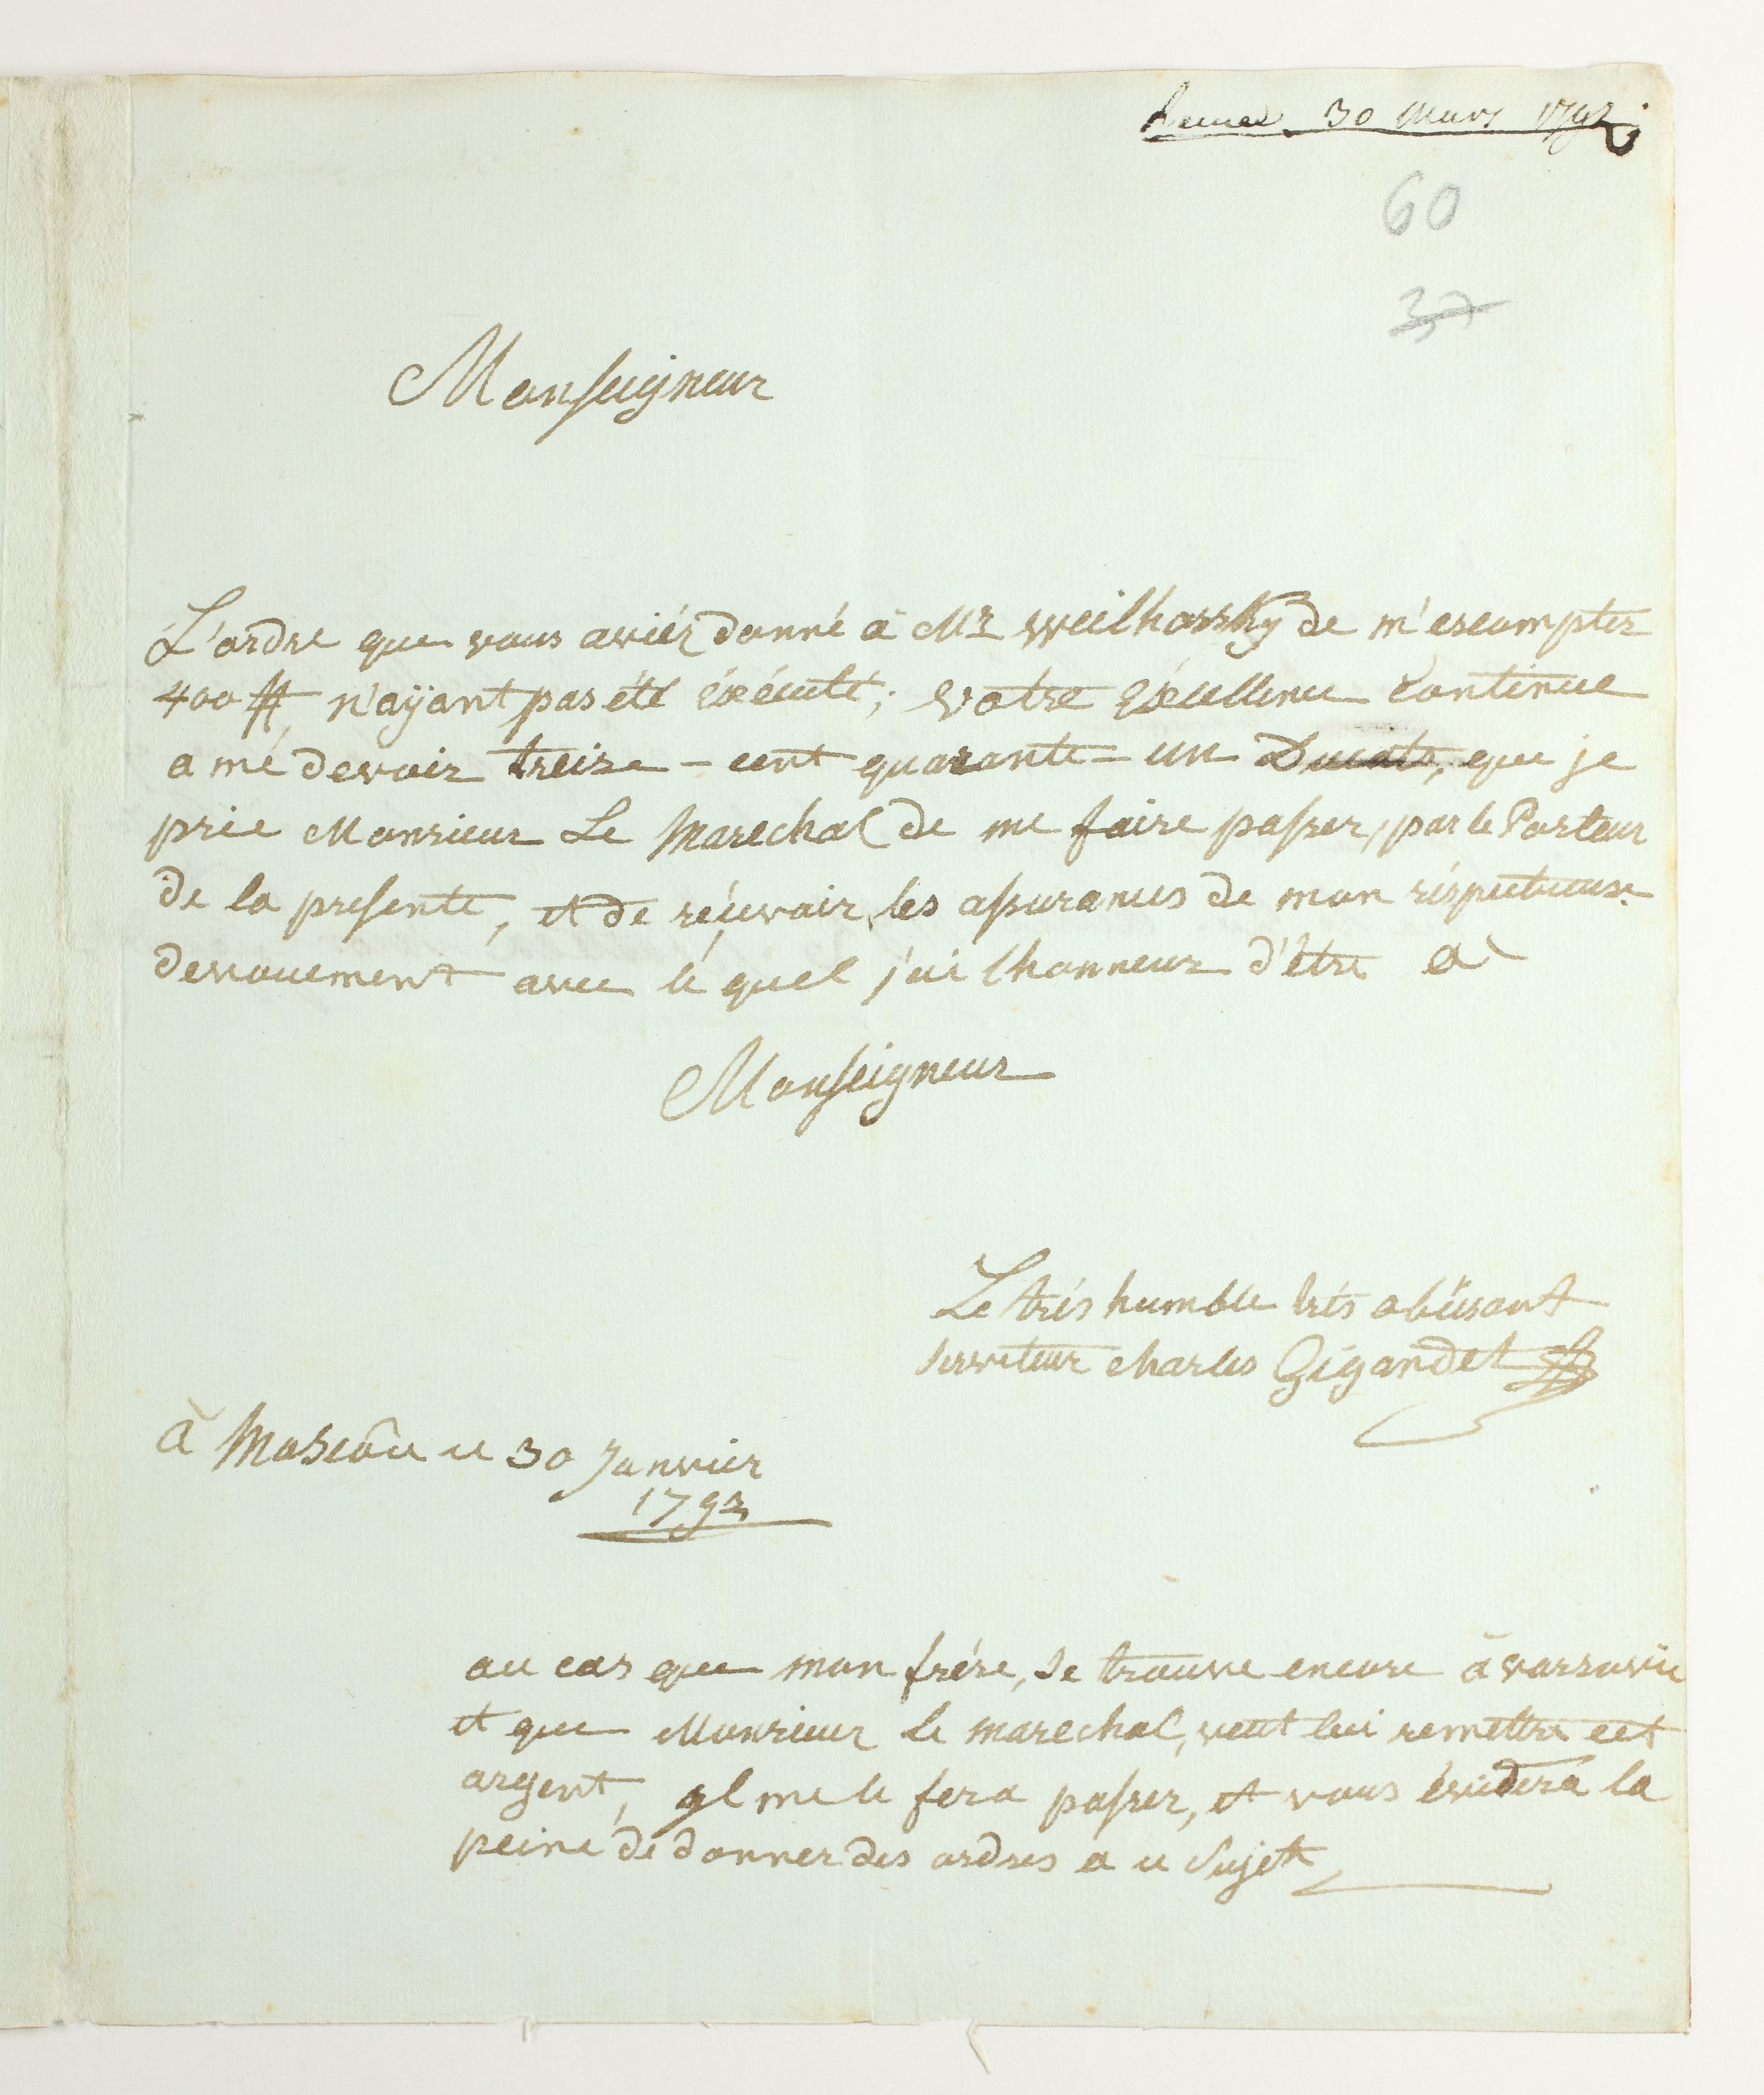 Remis 30 Mars 1792
60
37
Monseigneur
L'ordre que vous aviéz donné à Mr Weilhorsky de m'escompter
400 # n'aÿant pas été éxécuté; votre Exéllence continue
a mé devoir treize - cent quarante - un Ducats, que je
prie Monsieur Le Marechal de me faire passer, par le Porteur
de la presente, et de récevoir les assurances de mon réspectueuse
devouement avec lé quel j'ai lhonneur d'être a
Monseigneur
Le trés humble trés obéisant
serviteur charles Gigandet
à Moscôu ce 30 Janvier
1792
au cas que mon frére, se trouve encore à varsovie
et que Monsieur le marechal, veut lui remettre cet
argent, il me le fera passer, et vous évidera la
peine dé donner des ordres a ce sujet